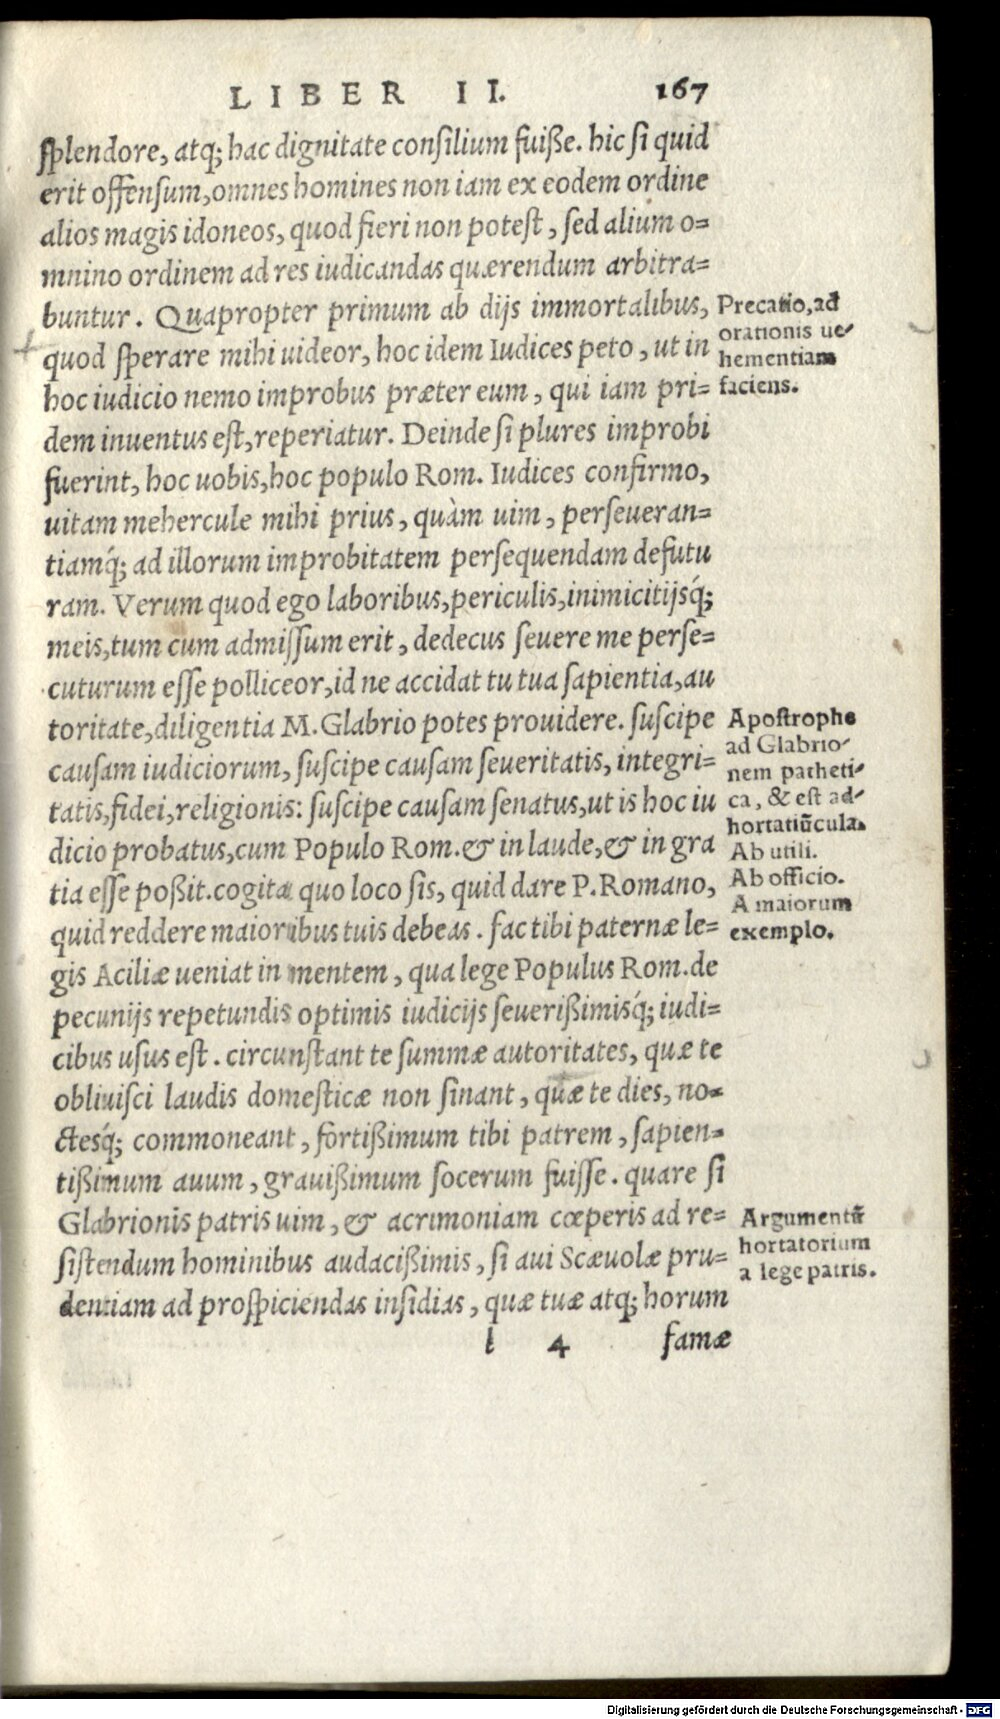 LIBER II. 167
splendore, atq; hac dignitate consilium fuiße. hic si quid
erit offensum, omnes homines non iam ex eodem ordine
alios magis idoneos, quod fieri non potest, sed alium o=
mnino ordinem ad res iudicandas quærendum arbitra=
buntur. Quapropter primum ab dijs immortalibus,
quod sperare mihi uideor, hoc idem Iudices peto, ut in
hoc iudicio nemo improbus præter eum, qui iam pri=
dem inuentus est, reperiatur. Deinde si plures improbi
fuerint, hoc uobis, hoc populo Rom. Iudices confirmo,
uitam mehercule mihi prius, quàm uim, perseueran=
tiamq́; ad illorum improbitatem persequendam defutu
ram. Verum quod ego laboribus, periculis, inimicitijsq́;
meis, tum cum admissum erit, dedecus seuere me perse=
cuturum esse polliceor, id ne accidat tu tua sapientia, au
toritate, diligentia M. Glabrio potes prouidere. suscipe
causam iudiciorum, suscipe causam seueritatis, integri=
tatis, fidei, religionis: suscipe causam senatus, ut is hoc iu
dicio probatus, cum Populo Rom. & in laude, & in gra
tia esse poßit. cogita quo loco sis, quid dare P. Romano,
quid reddere maioribus tuis debeas. fac tibi paternæ le=
gis Aciliæ ueniat in mentem, qua lege Populus Rom. de
pecunijs repetundis optimis iudicijs seuerißimisq́; iudi=
cibus usus est. circunstant te summæ autoritates, quæ te
obliuisci laudis domesticæ non sinant, quæ te dies, no=
ctesq́; commoneant, fortißimum tibi patrem, sapien=
tißimum auum, grauißimum socerum fuisse. quare si
Glabrionis patris uim, & acrimoniam cœperis ad re=
sistendum hominibus audacißimis, si aui Scæuolæ pru=
dentiam ad prospiciendas insidias, quæ tuæ atq; horum
l 4 famæ
Precatio, ad
orationis ue-
hementiam
faciens.
Apostrophe
ad Glabrio-
nem patheti-
ca, & est ad-
hortatiūcula.
Ab utili.
Ab officio.
A maiorum
exemplo.
Argumentū
hortatorium
a lege patris.
Digitalisierung gefördert durch die Deutsche Forschungsgemeinschaft - DFG